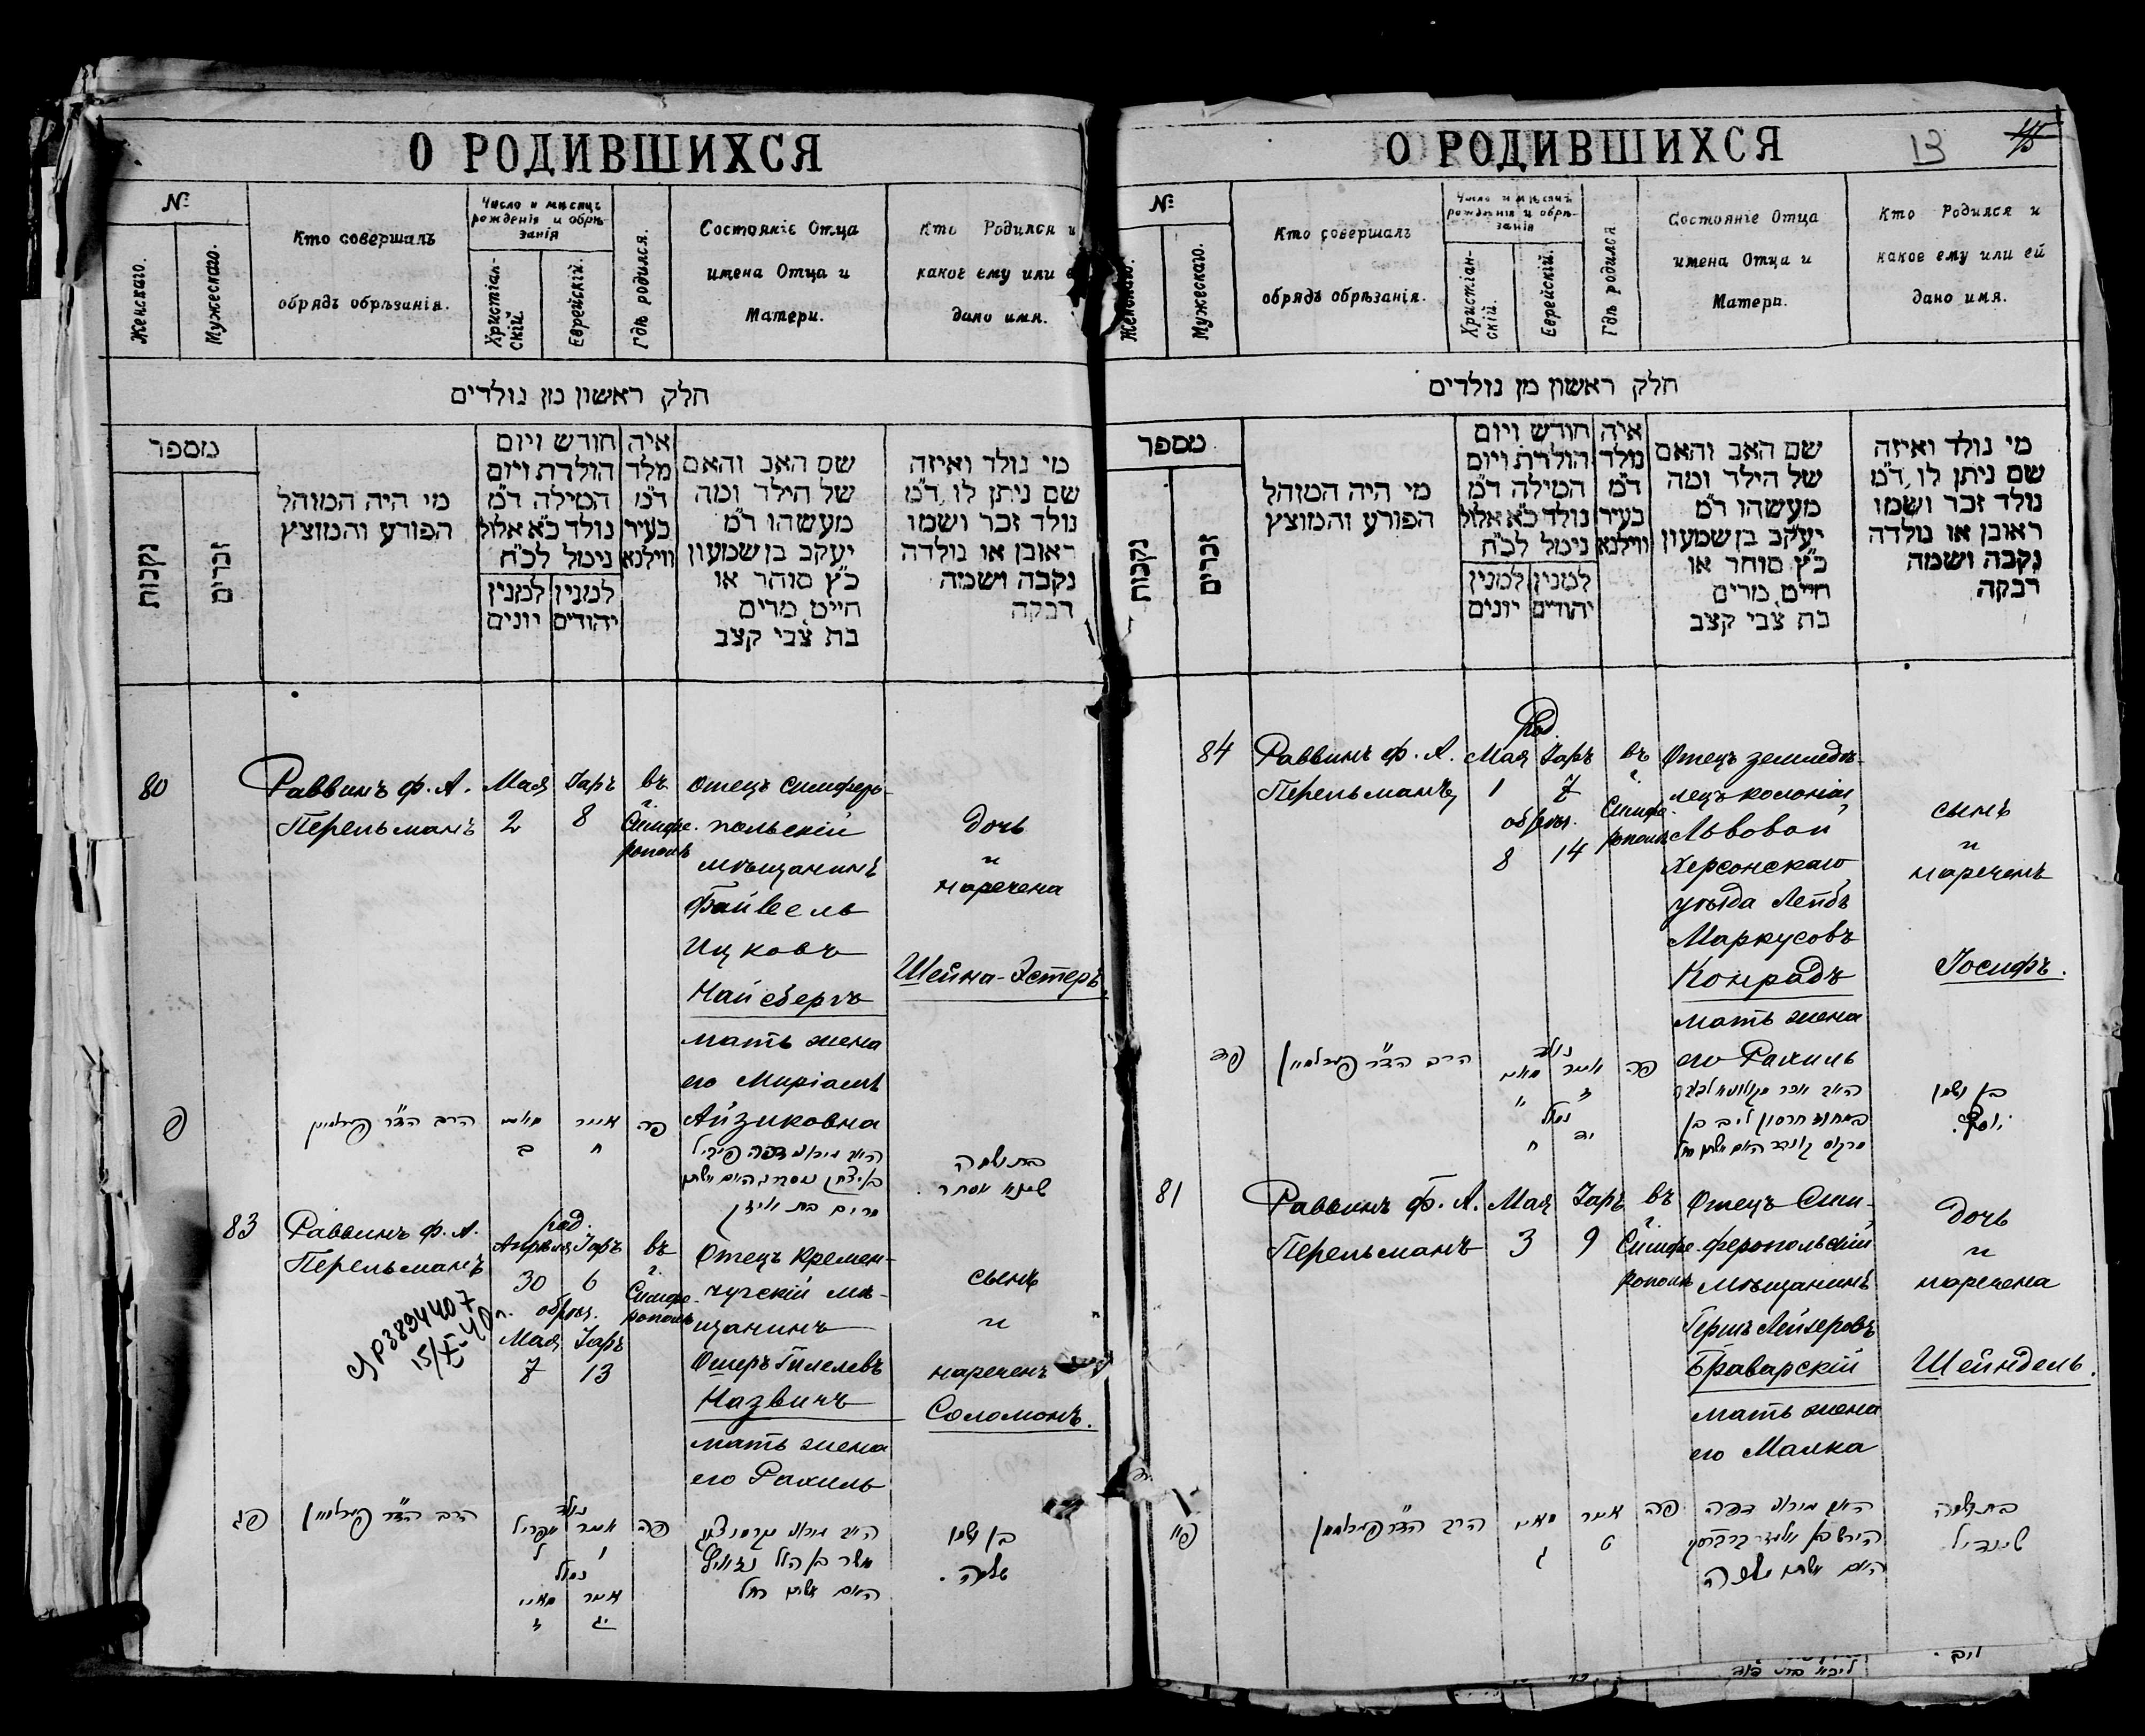 О РОДИВШИХСЯ
№
Женскаго.
Мужескаго.
Кто совершалъ
обрядъ обрѣзанія.
Число и мѣсяцъ
рожденія и обрѣ-
занія
Христіан-
скій.
Еврейскій.
Гдѣ родился.
Состояніе Отца
имена Отца и
Матери.
Кто Родился и
какое ему или
дано имя.
חלק ראשון מן נולדים
מספר
נקבות
זכרים
מי היה המוהל
הפורע והמוצץ
חודש ויום
הולדת ויום
המילה ד״מ
נולד כ״א אלול
נימל לכ״ח
למנין יהודים
למנין יונים
איה
מלד
ד״מ
בעיר
ווילנא
שם האב והאם
של הילד ומה
מעשהו ד״מ
יעקב בן שמעון
כ״ץ סוחר או
חייט מרים
בת צבי קצב
מי נולד ואיזה
שם ניתן לו ד״מ
נולד זכר ושמו
ראובן או נולדה
נקבה ושמה
רבקה
80
Раввинъ Ф. А.
Перельманъ
Мая
2
Іаръ
8
въ
г.
Симфе-
рополѣ
Отецъ Симферо-
польскій
мѣщанинъ
Файвель
Ицковъ
Найсбергъ
мать жена
его Миріамъ
Айзиковна
дочь
и
наречена
Шейна-Эстеръ.
פ
הרב הד״ר פערלמאן
מאי
ב
אייר
ח
פה
בת ושמה
שיינא אסתר.
83
Раввинъ Ф. А.
Перельманъ
род.
Апрѣля Іаръ
30 6
обрѣз.
Мая Іаръ
7 13
въ
г.
Симфе-
рополѣ
Отецъ Кремен-
чугскій мѣ-
щанинъ
Ошеръ Гилелевъ
Назвичъ
мать жена
его Рахиль
сынъ
и
нареченъ
Соломонъ.
פג
הרב הד״ר פערלמאן
נולד
אייר אפריל
ו ל
נמול
אייר מאי
יג ז
פה
האם אשתו רחל
בן ושמו
שלמה.
О РОДИВШИХСЯ
13
№
Женскаго.
Мужескаго.
Кто совершалъ
обрядъ обрѣзанія.
Число и мѣсяцъ
рожденія и обрѣ-
занія
Христіан-
скій.
Еврейскій.
Гдѣ родился
Состояніе Отца
имена Отца и
Матери.
Кто Родился и
какое ему или ей
дано имя.
חלק ראשון מן נולדים
מספר
נקבות
זכרים
מי היה המוהל
הפורע והמוצץ
חודש ויום
הולדת ויום
המילה ד״מ
נולד כ״א אלול
נימל לכ״ח
למנין יהודים
למנין יונים
איה
מלד
ד״מ
בעיר
ווילנא
שם האב והאם
של הילד ומה
מעשהו ד״מ
יעקב בן שמעון
כ״ץ סוחר או
חייט מרים
בת צבי קצב
מי נולד ואיזה
שם ניתן לו ד״מ
נולד זכר ושמו
ראובן או נולדה
נקבה ושמה
רבקה
84
Раввинъ Ф. А.
Перельманъ
род.
Мая Іаръ
1 7
обрѣз.
8 14
въ
г.
Симфе-
рополѣ
Отецъ земледѣ-
лецъ колоніи
Львовой
Херсонскаго
уѣзда Лейбъ
Маркусовъ
Конрадъ
мать жена
его Рахиль
сынъ
и
нареченъ
Іосифъ.
פד
הרב הד״ר פערלמאן
נולד
אייר מאי
נמול
יד ח
פה
בן ושמו
יוסף.
81
Раввинъ Ф. А.
Перельманъ
Мая
3
Іаръ
9
въ
г.
Симфе-
рополѣ
Отецъ Сим-
феропольскій
мѣщанинъ
Гершъ Лейзеровъ
Браварскій
мать жена
его Малка
дочь
и
наречена
Шейндель.
הרב הד״ר פערלמאן
מאי
ג
אייר
ט
פה
בת ושמה
שיינדיל